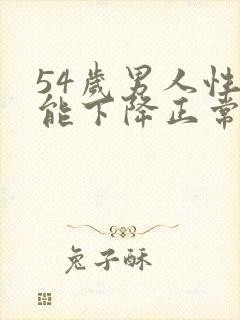 54歲男人性
能下降正常
兔子酥